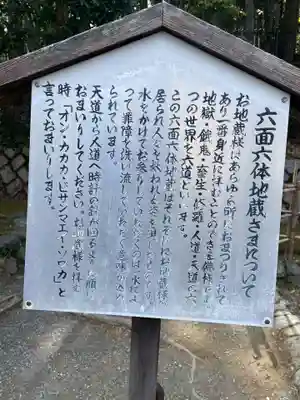 六面六体地蔵さまについて
お地蔵様はあらゆる所におまつりされて
あり一番身近に拝むことのできる佛様です
地獄・餓鬼・畜生・修羅・人道・天道の六
つの世界を六道といいます。
この六面六体地蔵はそれぞれにお地蔵様が
居られ人々を救われる姿を
水をかけてお参りしていただくのは、水によ
って罪障を洗い流していただく意味が込め
られています。
天道から人道へ時計の針が回るように順に
おまいりしてください。お地蔵様を拝む
時「オン・カカカ・ビサンマエイ・ソワカ」と
言っておまいりします。